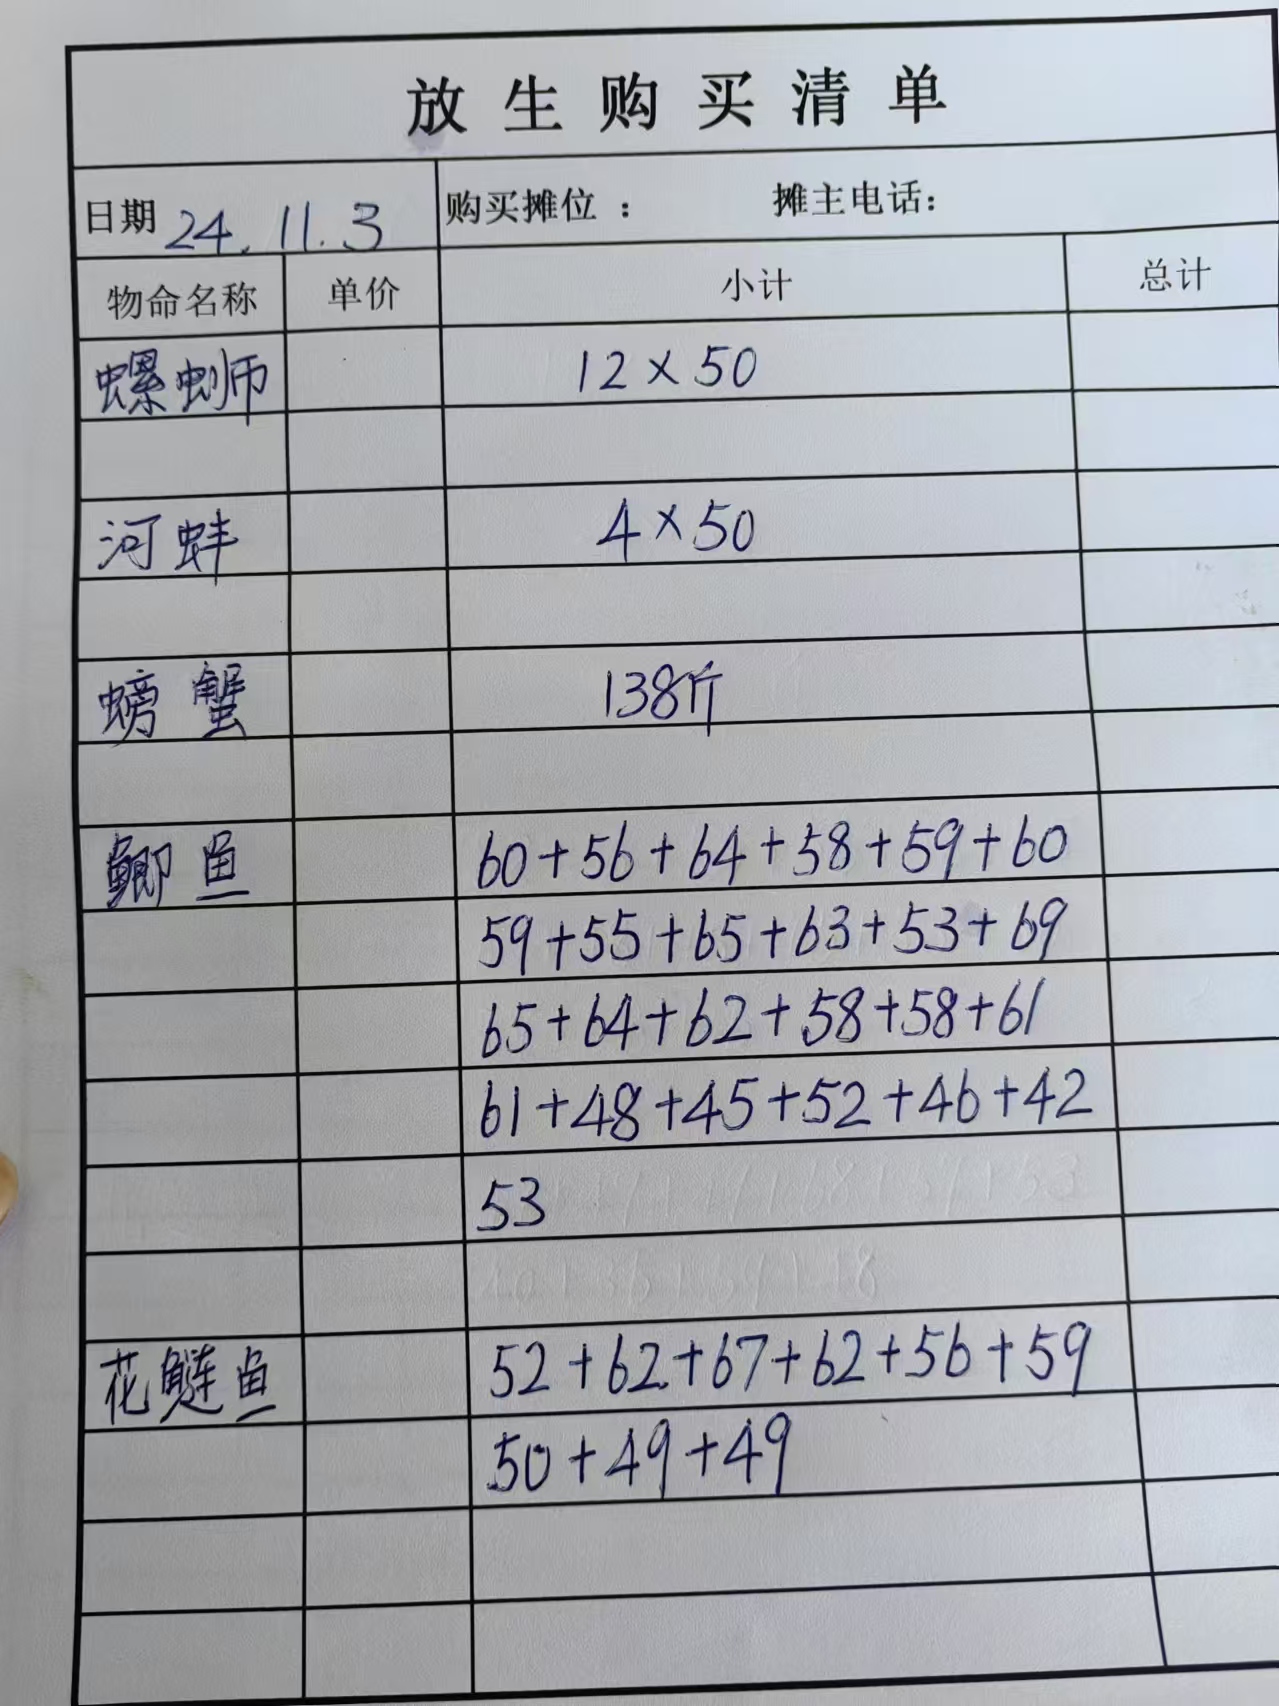 放生购买清单
日期 24.11.3 购买摊位： 摊主电话：
物命名称 单价 小计 总计
螺蛳 12×50
河蚌 4×50
螃蟹 138斤
鲫鱼 60+56+64+58+59+60
59+55+65+63+53+69
65+64+62+58+58+61
61+48+45+52+46+42
53
花鲢鱼 52+62+67+62+56+59
50+49+49